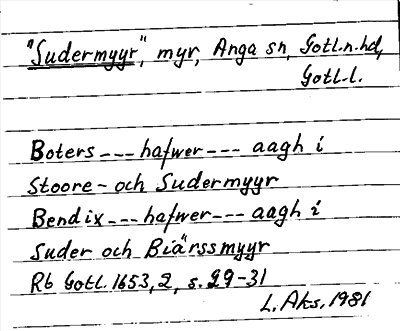 "Sudermyyr", myr, Anga sn, Gotl.n.hd,
Gotl.l.
Boters --- hafwer --- aagh i
Stoore- och Sudermyyr
Bendix --- hafwer --- aagh i
Suder och Biärssmyyr
Rb Gotl. 1653, 2, s. 29-31
L. Aks. 1981